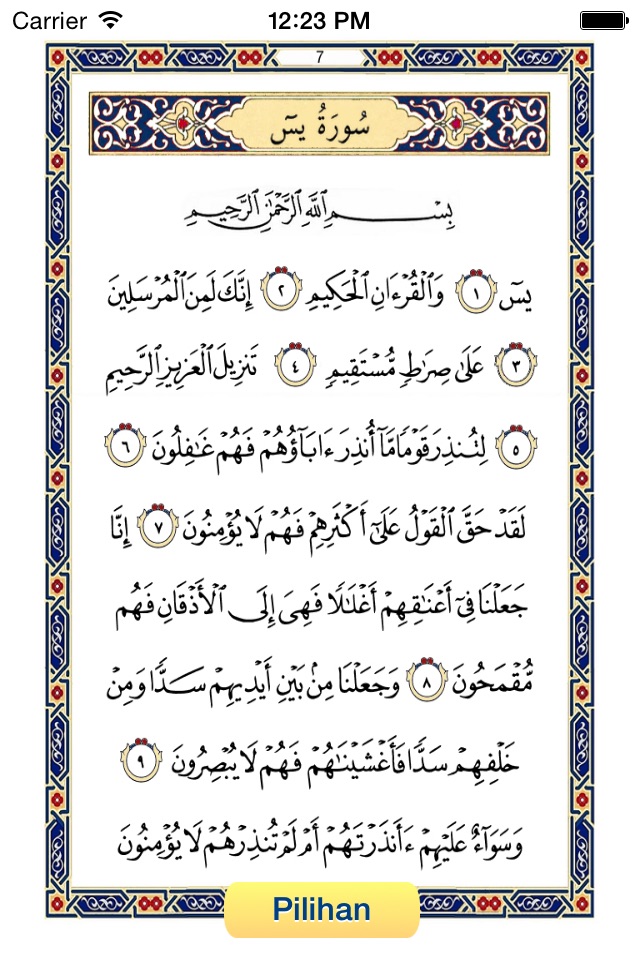 Carrier 12:23 PM
7
سُورَةُ يسٓ
بِسْمِ ٱللَّهِ ٱلرَّحْمَٰنِ ٱلرَّحِيمِ
يسٓ ١ وَٱلْقُرْءَانِ ٱلْحَكِيمِ ٢ إِنَّكَ لَمِنَ ٱلْمُرْسَلِينَ
٣ عَلَىٰ صِرَٰطٍ مُّسْتَقِيمٍ ٤ تَنزِيلَ ٱلْعَزِيزِ ٱلرَّحِيمِ
٥ لِتُنذِرَ قَوْمًا مَّآ أُنذِرَ ءَابَآؤُهُمْ فَهُمْ غَٰفِلُونَ ٦
لَقَدْ حَقَّ ٱلْقَوْلُ عَلَىٰٓ أَكْثَرِهِمْ فَهُمْ لَا يُؤْمِنُونَ ٧ إِنَّا
جَعَلْنَا فِىٓ أَعْنَٰقِهِمْ أَغْلَٰلًا فَهِىَ إِلَى ٱلْأَذْقَانِ فَهُم
مُّقْمَحُونَ ٨ وَجَعَلْنَا مِنۢ بَيْنِ أَيْدِيهِمْ سَدًّا وَمِنْ
خَلْفِهِمْ سَدًّا فَأَغْشَيْنَٰهُمْ فَهُمْ لَا يُبْصِرُونَ ٩
وَسَوَآءٌ عَلَيْهِمْ ءَأَنذَرْتَهُمْ أَمْ لَمْ تُنذِرْهُمْ لَا يُؤْمِنُونَ
Pilihan